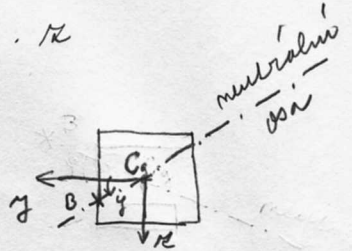 z
neutrální
osa
C
y
B
z